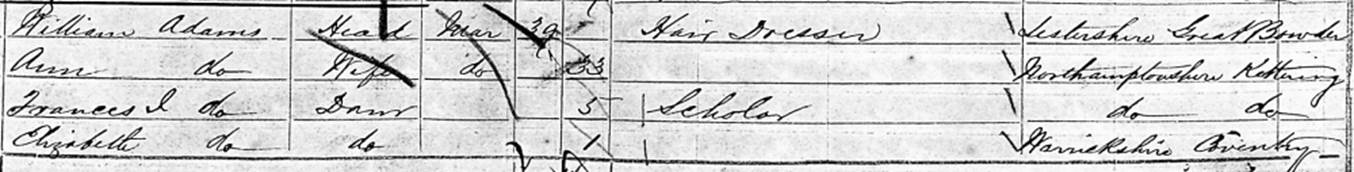 William Adams Head Mar 39 Hair Dresser Lestershire Great Bowder
Ann do Wife do 33 Northamptonshire Kettering
Frances I do Daur 5 Scholar do do
Elizabeth do do 1 Warrickshire Coventry